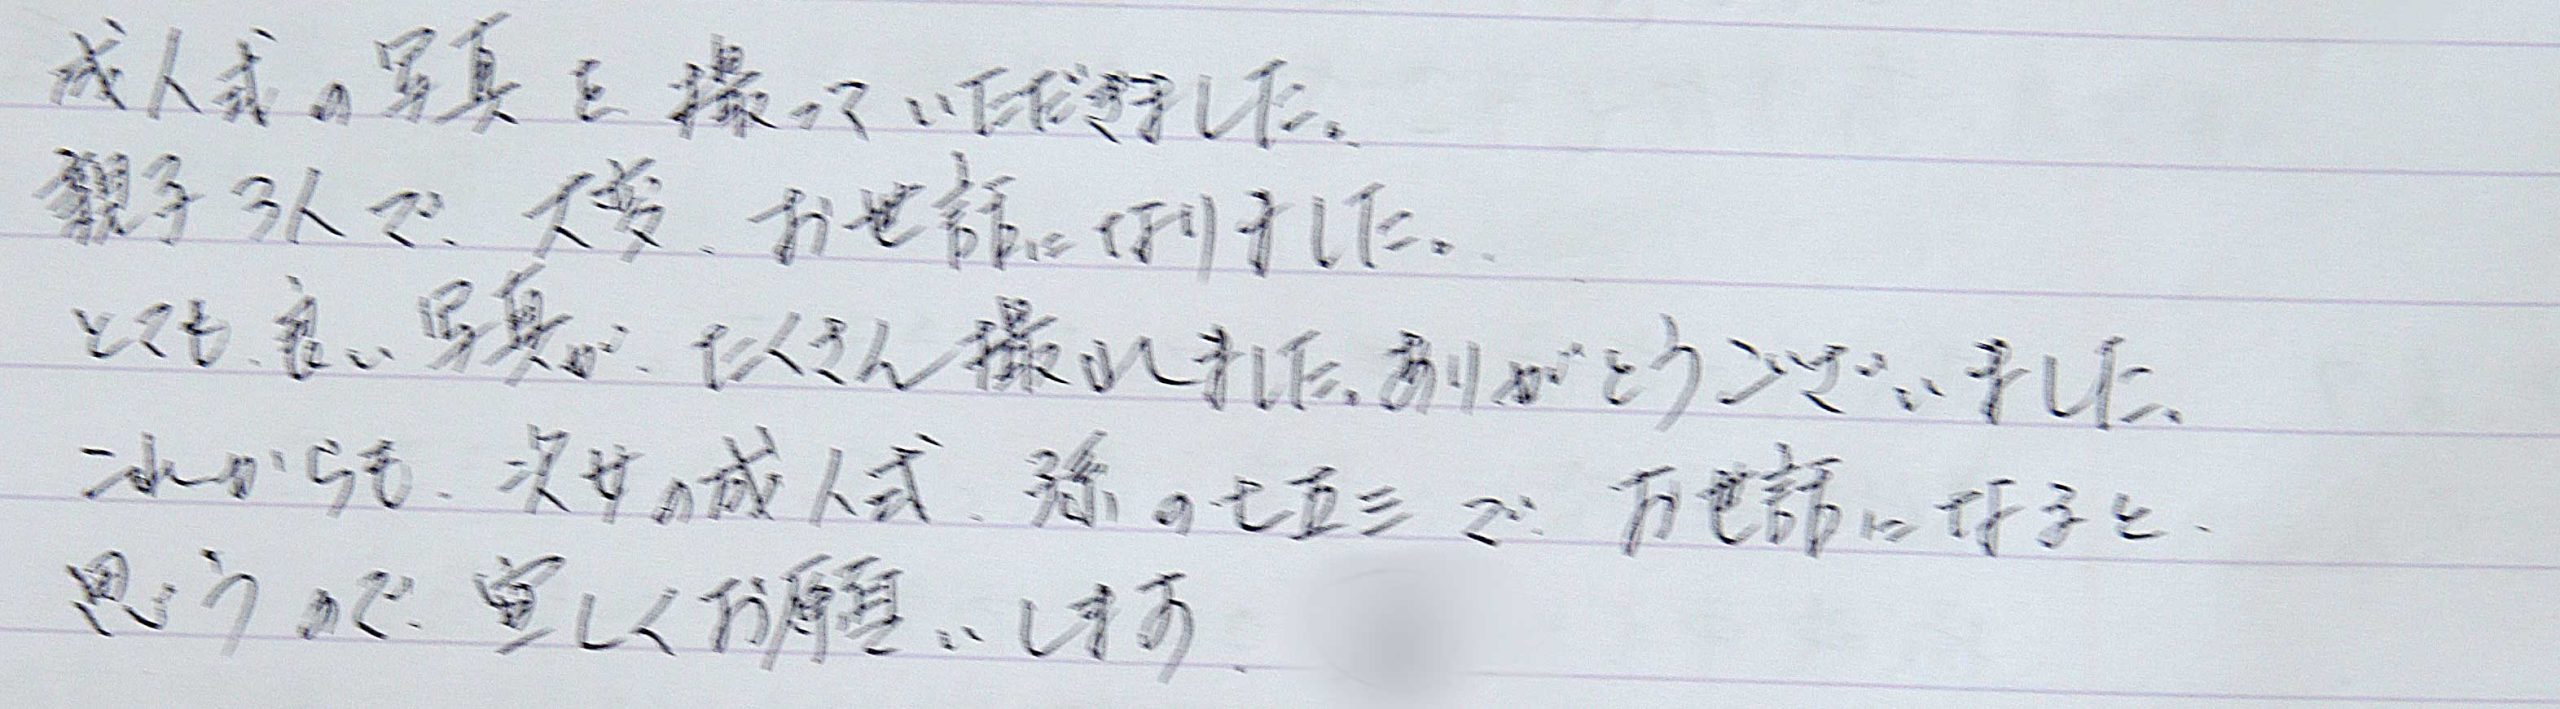 成人式の写真を撮っていただきました。
親子3人で、大変、お世話になりました。
とても、良い写真が、たくさん撮れました。ありがとうございました。
これからも、次女の成人式、孫の七五三で、お世話になると、
思うので、宜しくお願いします。